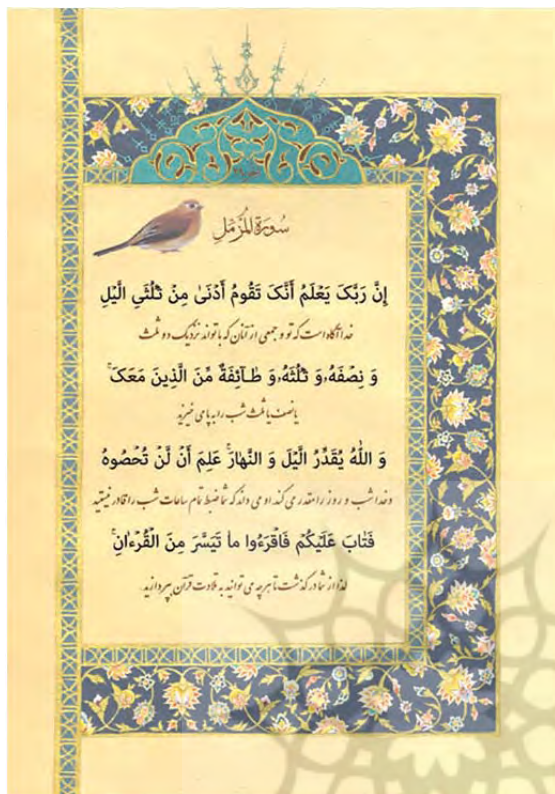 سُورَةُ المُزَّمِّلِ
إِنَّ رَبَّکَ یَعْلَمُ أَنَّکَ تَقُومُ أَدْنَىٰ مِنْ ثُلُثَیِ الَّیْلِ
خدا آگاه است که تو و جمعی از آنان که با تواند نزدیک دو ثلث
وَ نِصْفَهُ,وَ ثُلُثَهُ,وَ طَـآئِفَةٌ مِّنَ الَّذِینَ مَعَکَ ۚ
یا نصف یا ثلث شب را به پا می خیزید
وَ اللّٰهُ یُقَدِّرُ الَّیْلَ وَ النَّهٰارَ ۚ عَلِمَ أَنْ لَّنْ تُحْصُوهُ
و خدا شب و روز را مقدر می کند او می داند که شما ضبط تمام ساعات شب را قادر نیستید
فَتٰابَ عَلَیْکُمْ فَاقْرَءُوا مٰا تَیَسَّرَ مِنَ الْقُرْءٰانِ ۚ
لذا از شما در گذشت تا هرچه می توانید به تلاوت قرآن بپردازید.